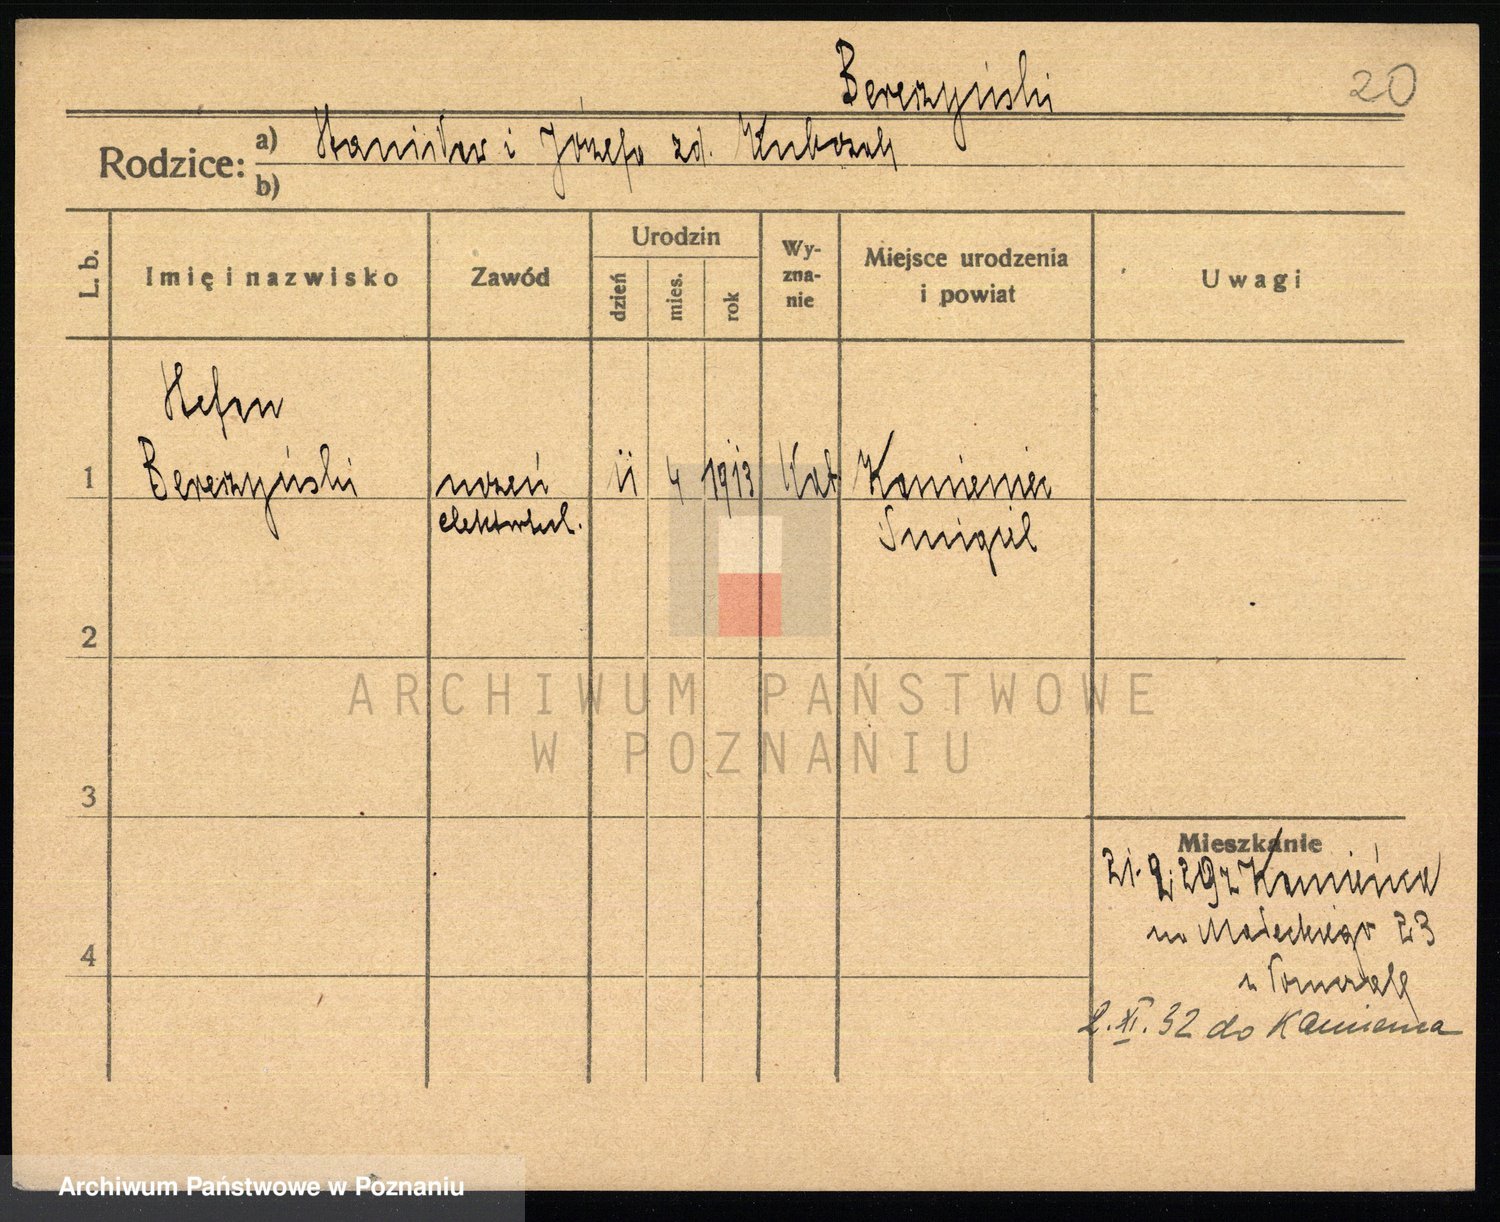 Bereszyński
20
Rodzice: a) Stanisław i Józefa zd. Kubczak
b)
L. b.
Imię i nazwisko
Zawód
Urodzin
dzień
mies.
rok
Wy-
zna-
nie
Miejsce urodzenia
i powiat
Uwagi
Stefan
1 Bereszyński uczeń 11 4 1913 kat Kamieniec
Śmigiel
2
3
4
Mieszkanie
21. 9. 29 z Kamieńca
Małeckiego 23
2. XI. 32 do Kamieńca
ARCHIWUM PAŃSTWOWE
W POZNANIU
Archiwum Państwowe w Poznaniu